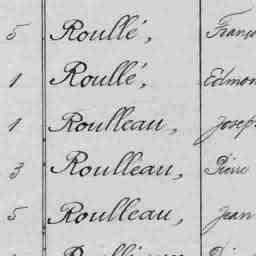 5 Roullé,
1 Roullé, Edmon
1 Roulleau, Josep
3 Roulleau, Pierre
5 Roulleau, Jean